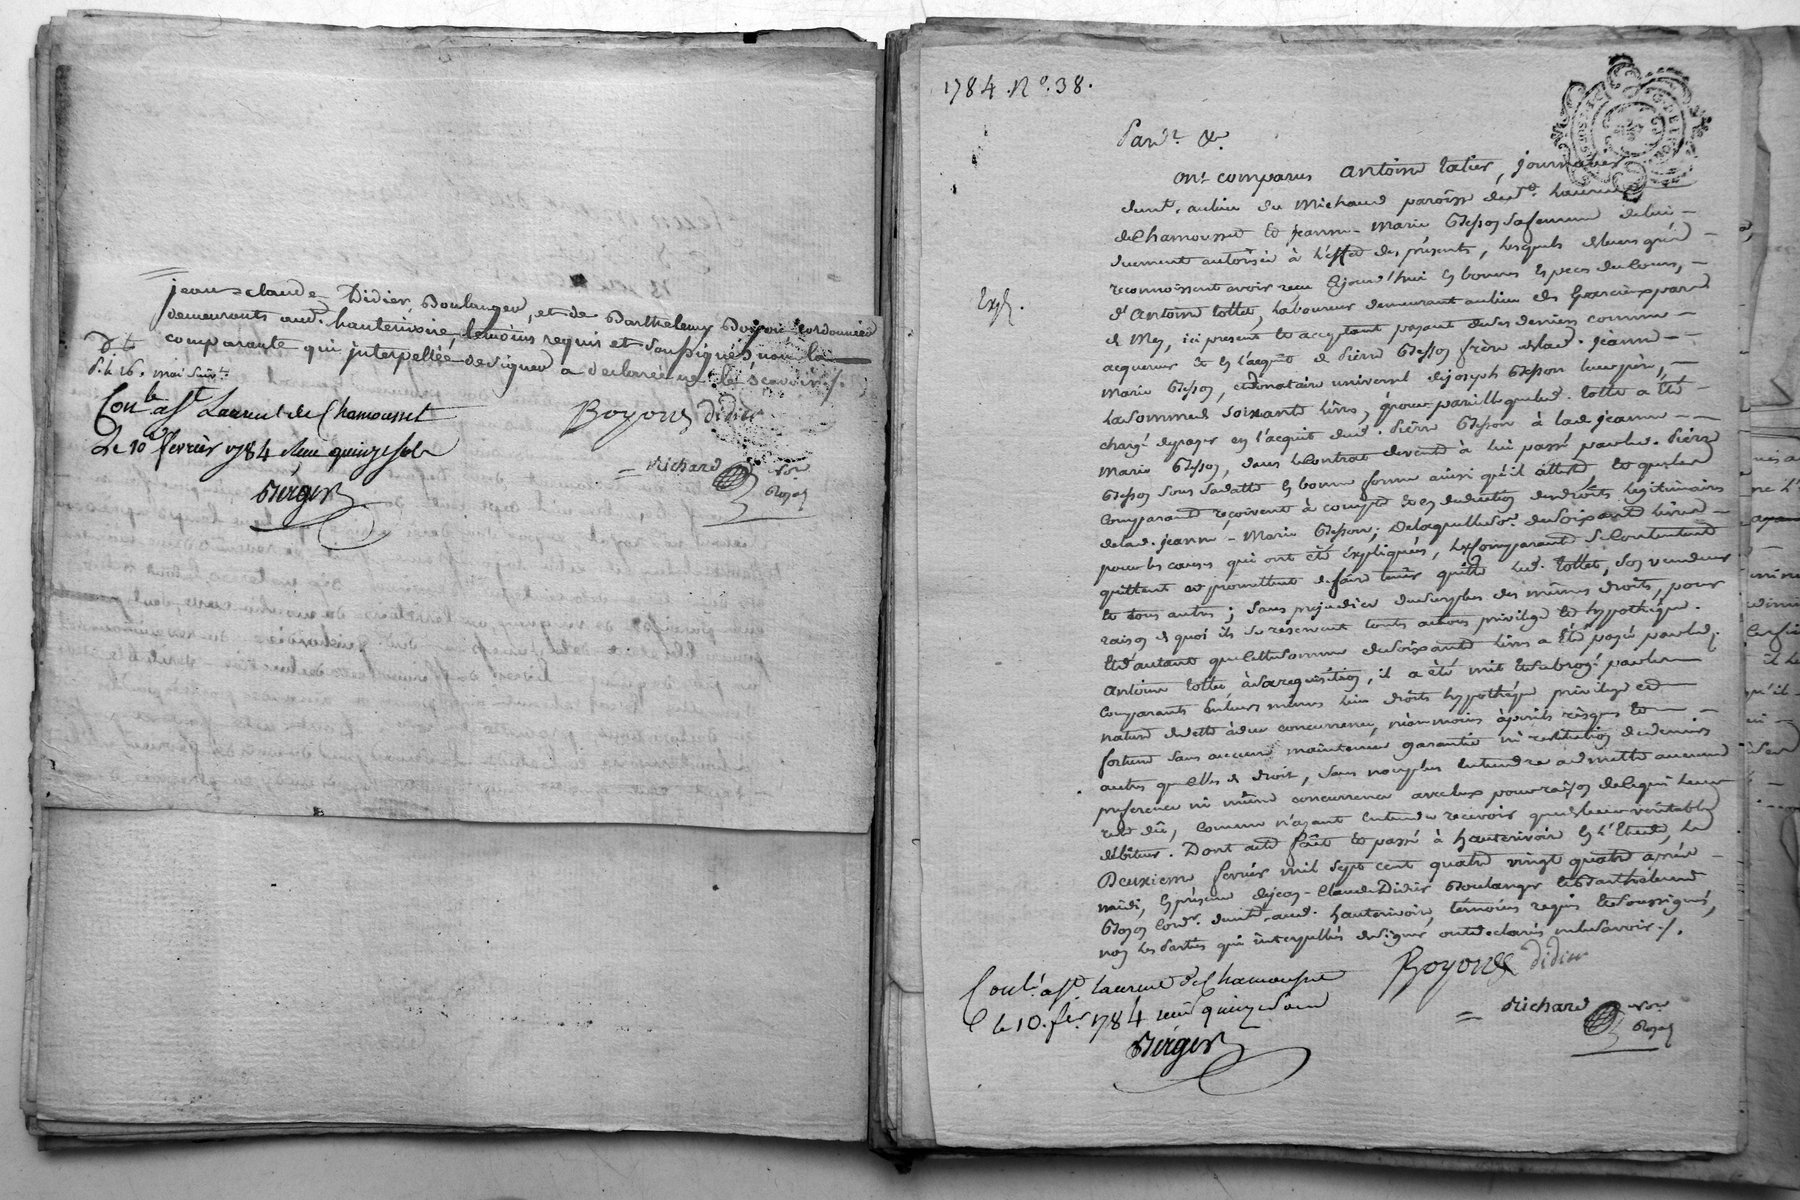 jean-claude Didier, Boulanger, et de Barthelemy Boyon Cordonnier
demeurants aud. hauterivoire, temoins requis et soussignés non la
comparante qui interpellée de signer a declarée ne le scavoir ./.
D 4
S. le 26. mai suivt.
Conle. à St. Laurent de Chamousset
Le 10 fevrier 1784 Reçu quinze sols
Berger
Boyon Didier
= Richard nore
Royal
1784 . No. 38.
Pardt. &.
Expé.
ont comparus Antoine tatier, journalier
demt. au lieu du Michaud paroisse de st. Laurent
de Chamousset et jeanne-Marie Besson sa femme de lui
duement autorisée à l'effet des présentes, lesquels de leurs gré
reconnoissent avoir reçu ce jourd'hui en bonnes especes de cours,
d'Antoine tollet, Laboureur demeurant au lieu de
de Mey, ici present et acceptant payant de ses deniers comme
acquereur et en l'acquit de Pierre Besson frère de lad. jeanne
Marie Besson, et donataire universel de joseph Besson leur père,
La somme de soixante livres, pour par lle quelle led. tollet a été
chargé de payer en l'acquit dud. Pierre Besson à lad. jeanne
Marie Besson, dans le Contrat de vente à lui passé par led. Pierre
Besson sous sa datte en bonne forme ainsi qu'il atteste et que les
Comparants reçoivent à compte et en deduction des droits legitimaires
de lad. jeanne-Marie Besson; de laquelle so. de soixante livres
pour les causes qui ont été expliquées, les Comparants se Contentent
quittent et promettent de faire tenir quitte led. tollet, son vendeur
et tous autres; sans prejudice du surplus des mêmes droits, pour
raison de quoi ils se réservent toutes actions privilege et hypothéque.
Et d'autant que cette somme de soixante livres a été payée par led.
Antoine tollet, à sa requisition, il a été mit et subrogé par les
Comparants en leurs mêmes lieu droits hypothéque privilege et
nature de dette à due concurrence, néanmoins à perils risques et
fortune sans aucune maintenue garantie ni restitution de deniers
autres que celles de droit, sans non plus entendre admettre aucune
preference ni même concurrence avec eux pour raison de ce qui leur
reste dû, comme n'ayant entendu recevoir que de leur véritable
débiteur. Dont acte fait et passé à hauterivoire en l'Etude, Le
Deuxieme fevrier mil sept cent quatre vingt quatre après
midi, en présence de jean-Claude Didier Boulanger et Barthélemi
Boyon Cordr. demts. aud. hauterivoire, témoins requis et soussignés,
non les Parties qui interpellés de signer ont déclarés ne le savoir ./.
Boyon Didier
Conle. à St. Laurent de Chamousset
le 10. fer. 1784 reçu quinze sous
Berger
= Richard nore
Royal